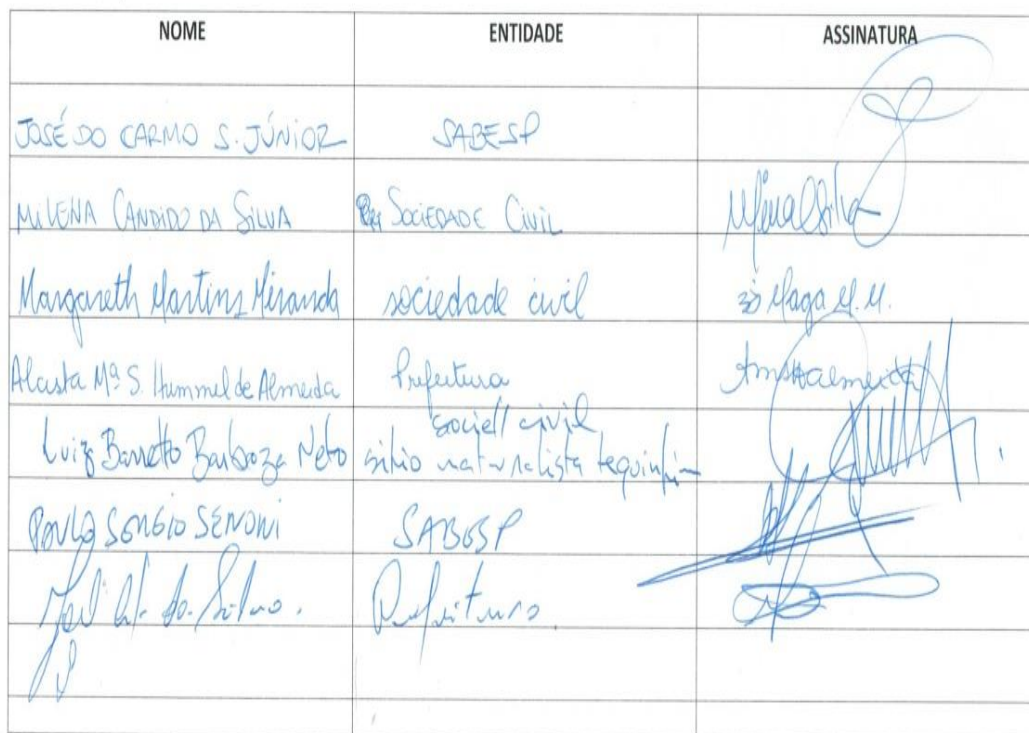 NOME ENTIDADE ASSINATURA
JOSÉ DO CARMO S. JÚNIOR SABESP
MILENA CANDIDO DA SILVA SOCIEDADE CIVIL
Margareth Martins Miranda sociedade civil Maga M.M.
Alcista Mª S. Hummel de Almeida Prefeitura
socied/ civil
Luiz Barretto Barboza Neto sitio naturalista
PAULO SERGIO SENONI SABESP
da Silva. Prefeitura